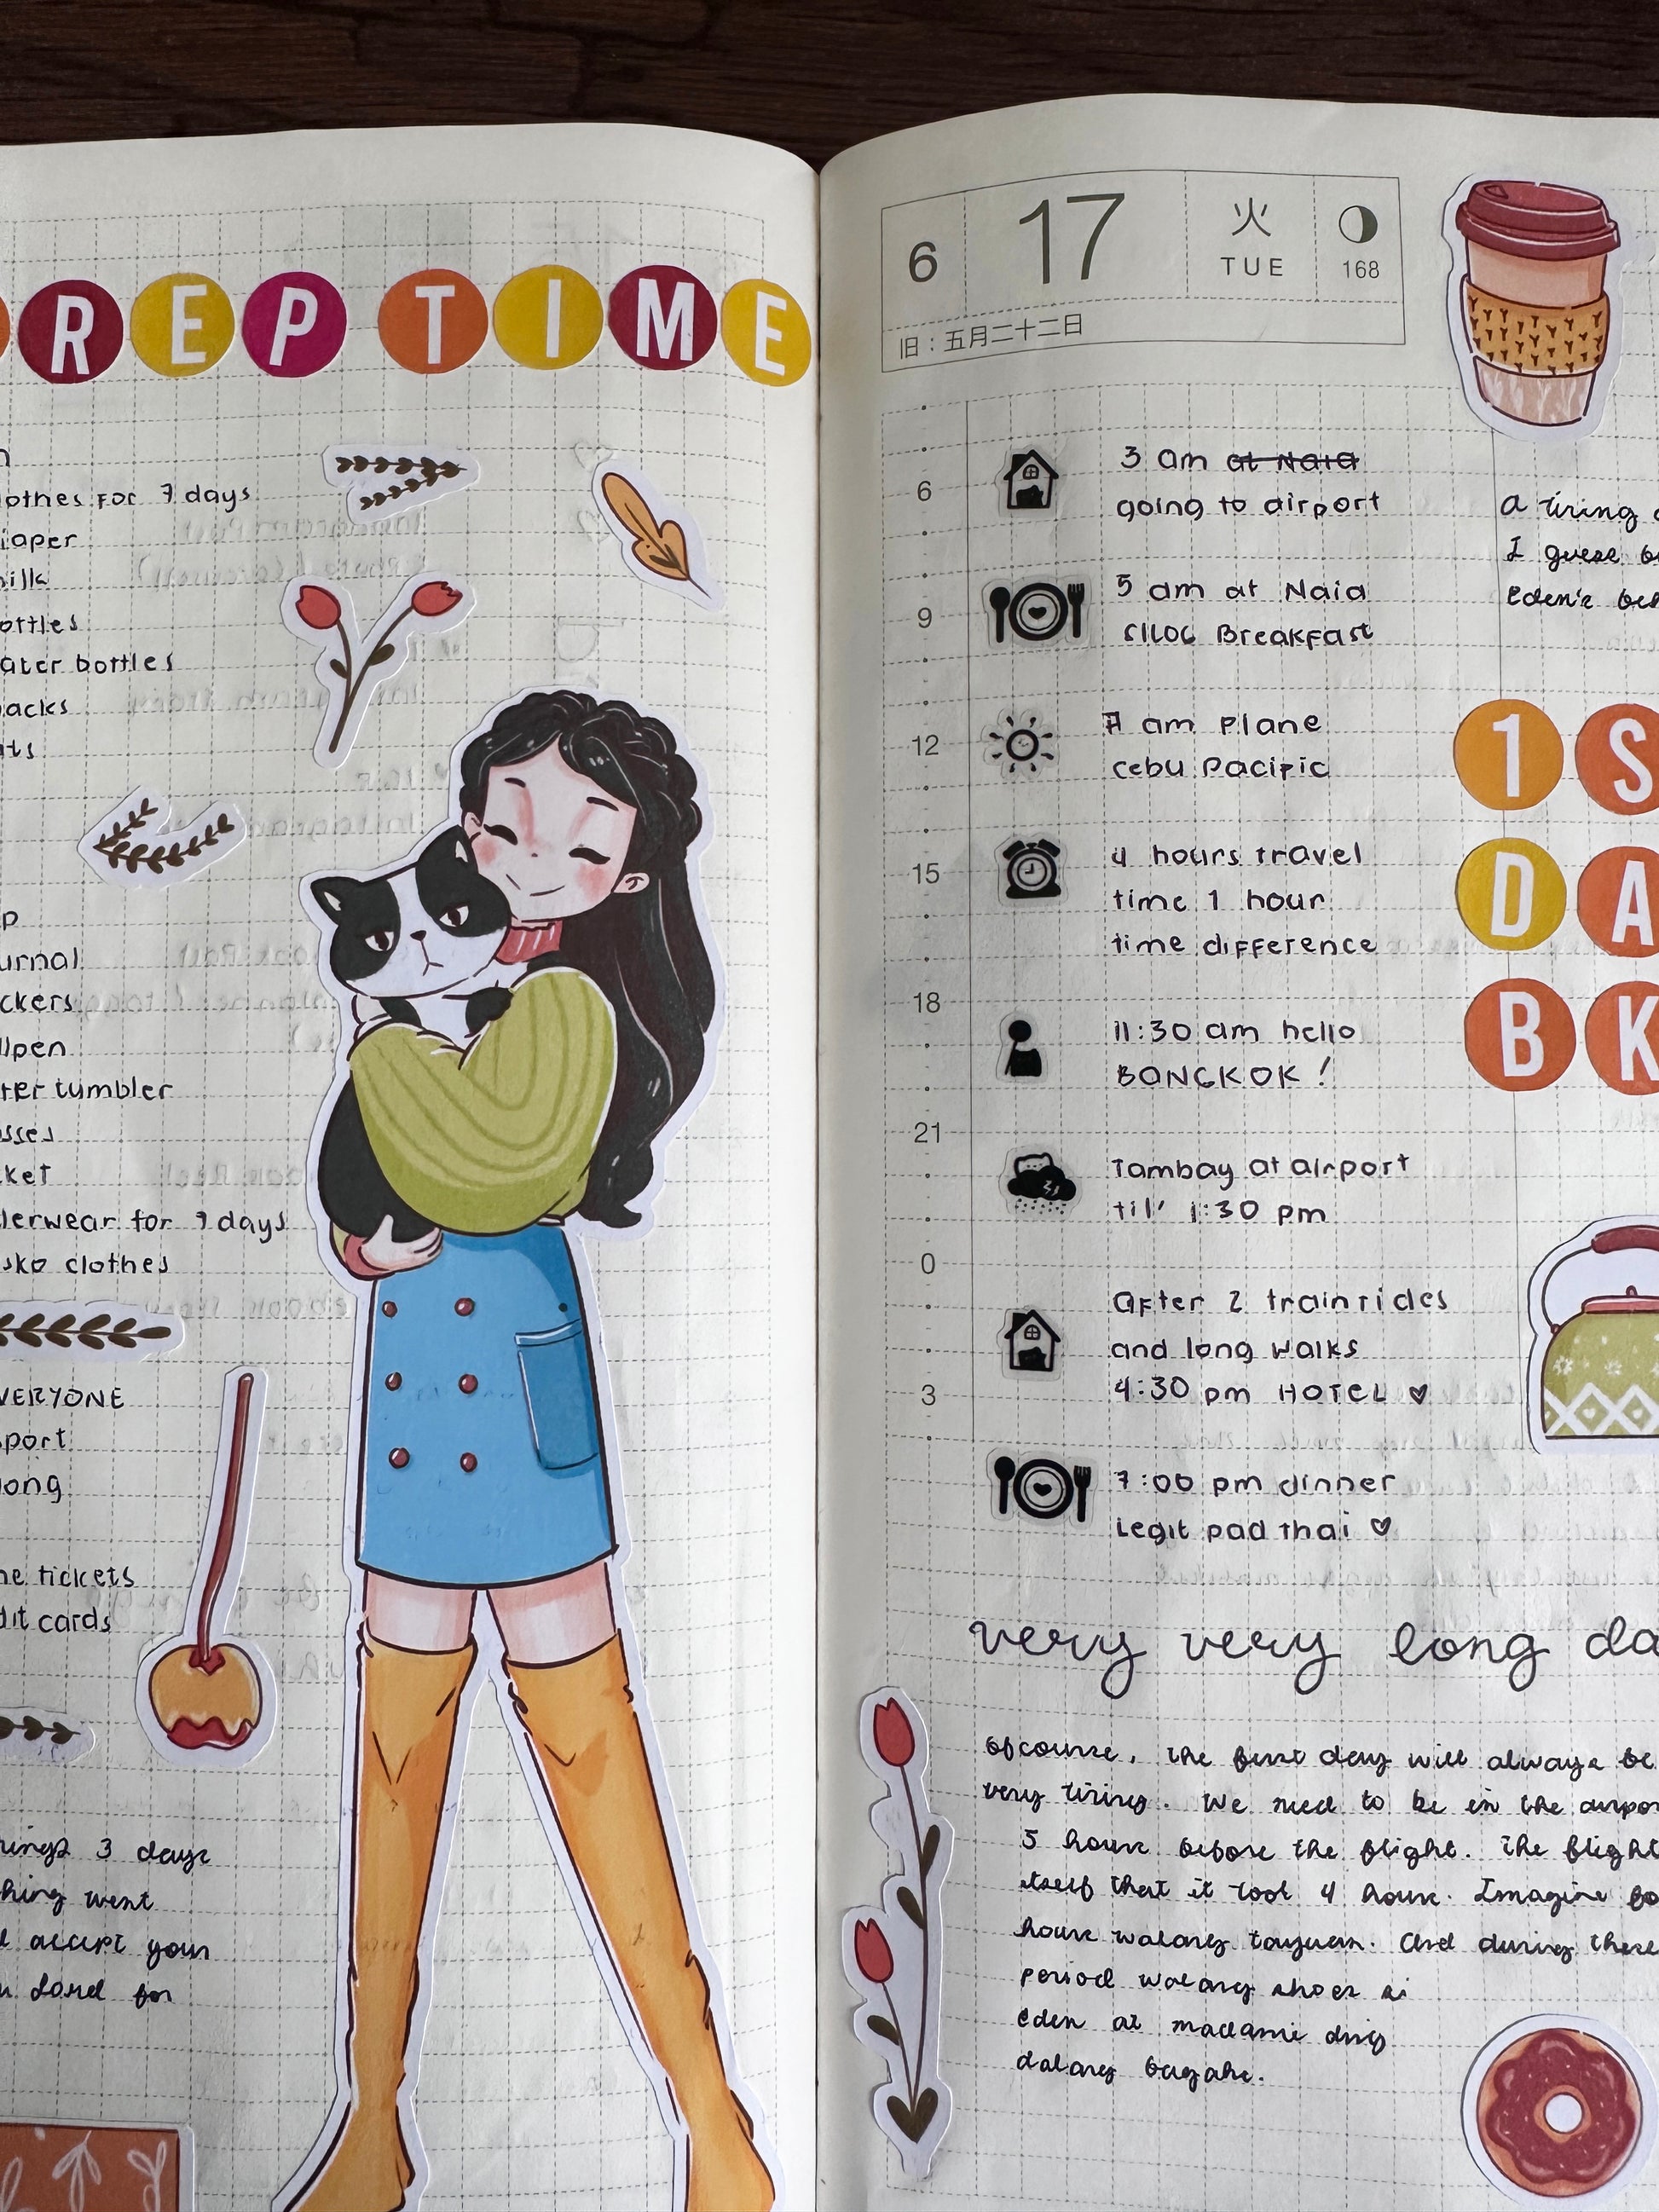 REP TIME
lothes for 7 days
iaper
milk
ottles
ater bottles
acks
urnal
ckers
llpen
ter tumbler
asses
ket
derwear for 7 days
sko clothes
VERYONE
sport
ong
ne tickets
dit cards
rings 3 days
thing went
accept your
Lord for
6 17 火 TUE 168
旧：五月二十二日
6
9
12
15
18
21
0
3
3 am at Naia
going to airport
5 am at Naia
SILOG Breakfast
7 am Plane
cebu Pacific
4 hours travel
time 1 hour
time difference
11:30 am hello
BANGKOK !
Tambay at airport
til' 1:30 pm
After 2 train rides
and long walks
4:30 pm HOTEL ♥
7:00 pm dinner
Legit pad thai ♡
A tiring
I guess
Eden's
1 S
D A
B K
very very long da
Ofcourse, the first day will always be
very tiring. We need to be in the airpor
3 hours before the flight. The flight
itself that it took 4 hours. Imagine
hours walang tayuan. And during these
period walang shoes si
eden at madami ding
dalang bagahe.